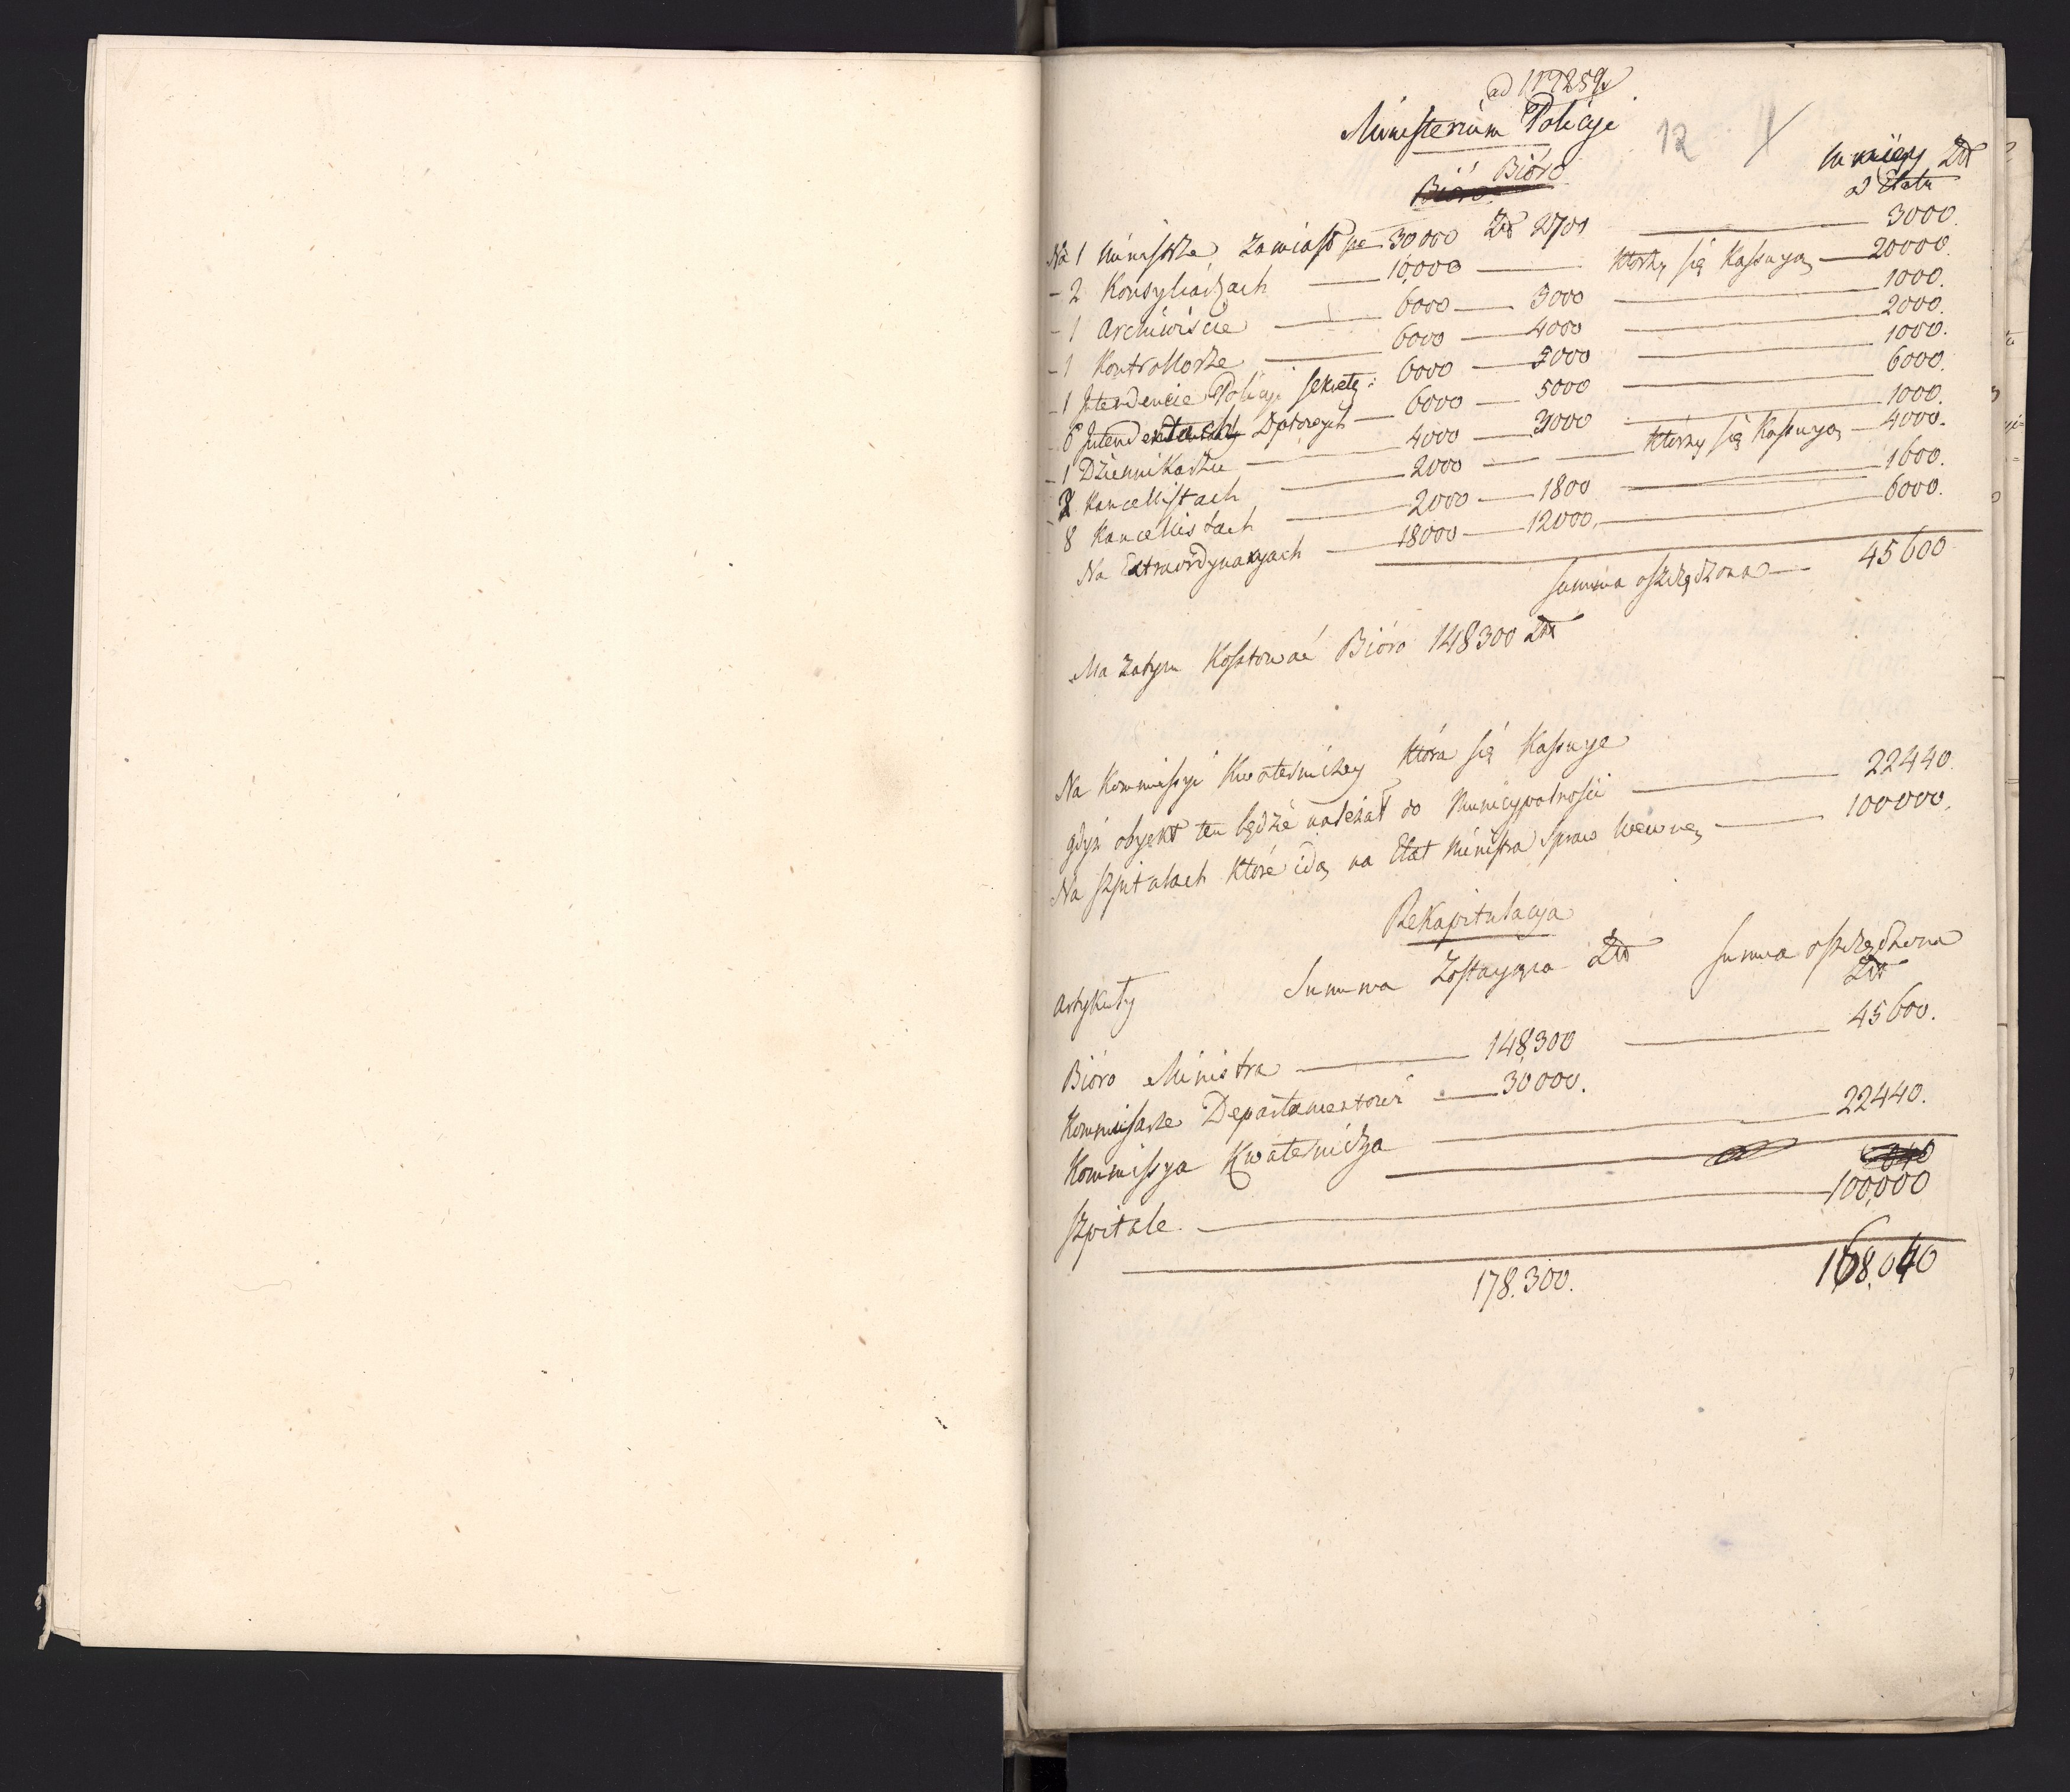 ad N 7259
Ministerium Policyi
12
Bióro
Bióro
umnieyszy Złł
z Etatu
Na 1 Ministrze zamiast na 30000 Złł 2700 — 3000.
– 2 Konsyliarzach — 10,000 — którzy się Kassuyą — 20000.
– 1 Archiwiście — 6000 — 5000 — 1000.
– 1 Kontrollorze — 6000 — 4000 — 2000.
– 1 Intendencie Policyi sekretę: 6000 — 5000 — 1000.
– 6 Intendentach Dozorcych — 6000 — 5000 — 6000.
– 1 Dziennikarzu — 4000 — 3000 — 1000.
– 2 Kancellistach — 2000 — którzy się Kassuyą — 4000.
8 Kancellistach — 2000 — 1800 — 1600.
Na Extraordynaryach — 18000 — 12000. — 6000.
summa oszczędzona — 45600
Ma zatym Kosztować Bióro 148300 Złł
Na Kommissyi Kwaterniczey która się Kassuye
gdyż obyekt ten będzie należał do Municypalności — 22440.
Na szpitalach które idą na Etat Ministra Spraw Wewnę — 100000.
Rekapitulacya
Artykuły Summa Zostaiąca Złł summa oszczędzona
Złł
Bióro Ministra — 148,300 — 45600.
Kommissarze Departamentowi — 30000.
Kommissya Kwaternicza — 22440.
Szpitale. — 100,000
178.300. 168,040